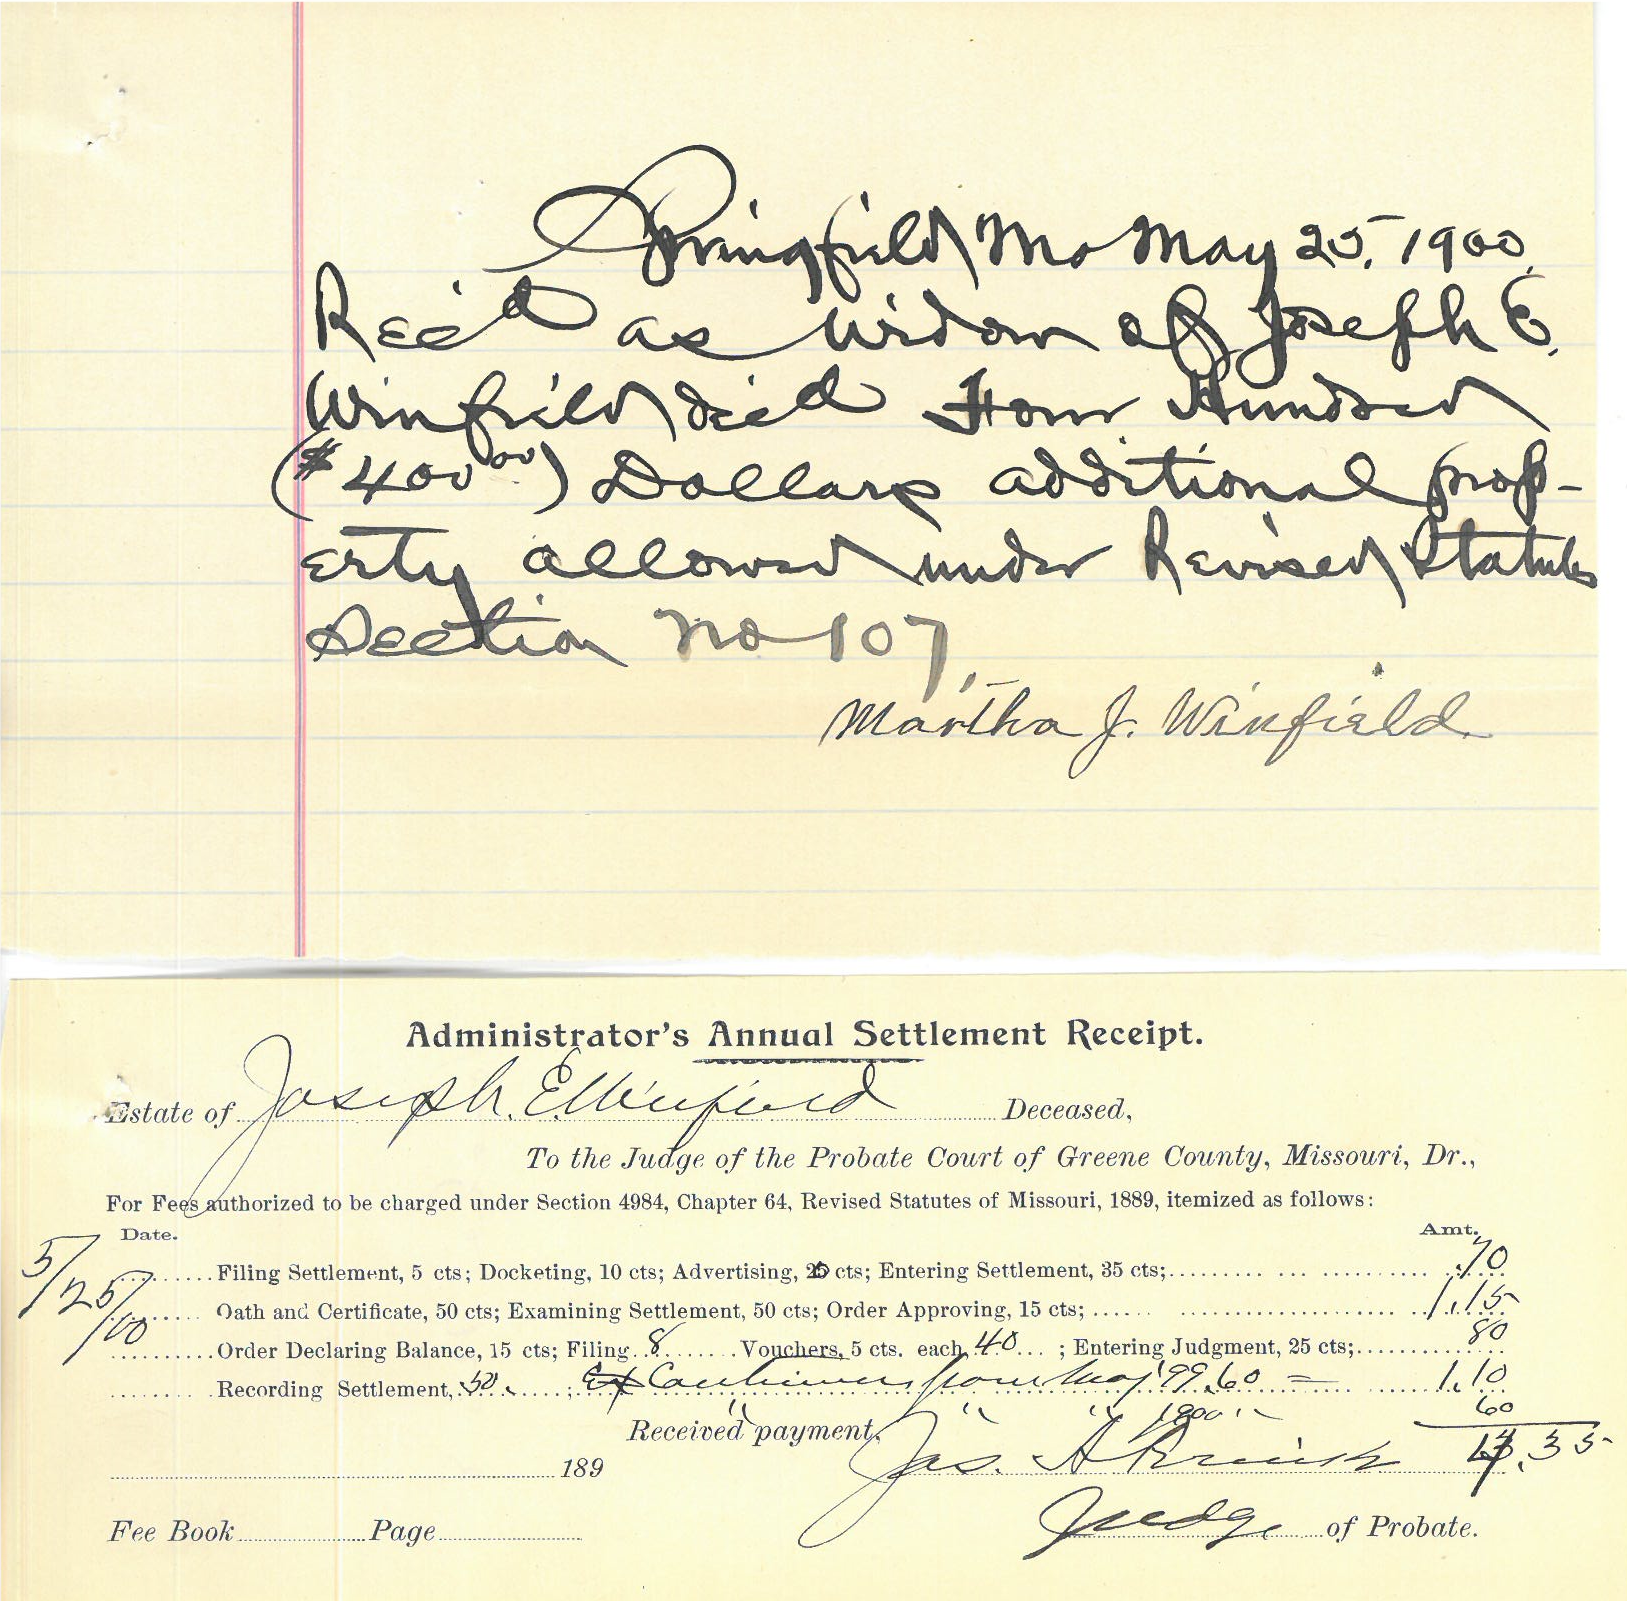 Springfield Mo May 25, 1900.
Rec'd as Widow of Joseph E.
Winfield dec'd Four Hundred
($400 00) Dollars additional prop-
erty allowed under Revised Statutes
Section No 107.
Martha J. Winfield.
Administrator's Annual Settlement Receipt.
Estate of Joseph. E. Winfield Deceased,
To the Judge of the Probate Court of Greene County, Missouri, Dr.,
For Fees authorized to be charged under Section 4984, Chapter 64, Revised Statutes of Missouri, 1889, itemized as follows:
Date. Amt.
5/25/00
Filing Settlement, 5 cts; Docketing, 10 cts; Advertising, 20 cts; Entering Settlement, 35 cts; .70
Oath and Certificate, 50 cts; Examining Settlement, 50 cts; Order Approving, 15 cts; 1.15
Order Declaring Balance, 15 cts; Filing 8 Vouchers, 5 cts. each, 40 ; Entering Judgment, 25 cts; 80
Recording Settlement, 50 ; from May '99, 60 = 1.10
" " " 1900 " 60
Received payment, 4.35
189 Jas.
Judge of Probate.
Fee Book Page